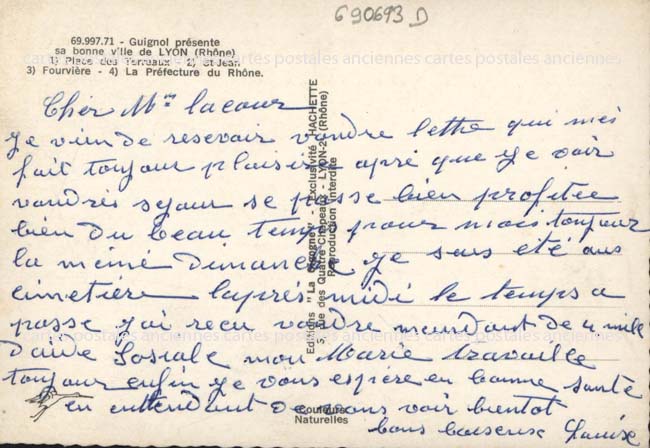 690693 D
69.997.71 - Guignol présente
sa bonne ville de LYON (Rhône)
1) Place des Terreaux - 2) St-Jean
3) Fourvière - 4) La Préfecture du Rhône.
cartes postales anciennes cartes postales anciennes cartes postales
Cher Mr lacour
Je vien de resevoir vondre lettre qui mei
fait toujour plaisir apré que ye voir
vondrés sejour se passe bien profitée
bien du beau temps pour mois toujour
la meme Dimanche ye suis été aus
cimetière laprés midi le temps a
passe j'ai recu vondre mandant de 4 mille
Daide Sosiale mon Marie travaille
toujour enfin ye vous espere en bonne santé
en entendant de vous voir bientot
bons baiseux Louise
Editions "La Cigogne" - Exclusivité HACHETTE
5, Rue des Quatre-Chapeaux - LYON-2e (Rhône)
Reproduction interdite
Couleurs
Naturelles